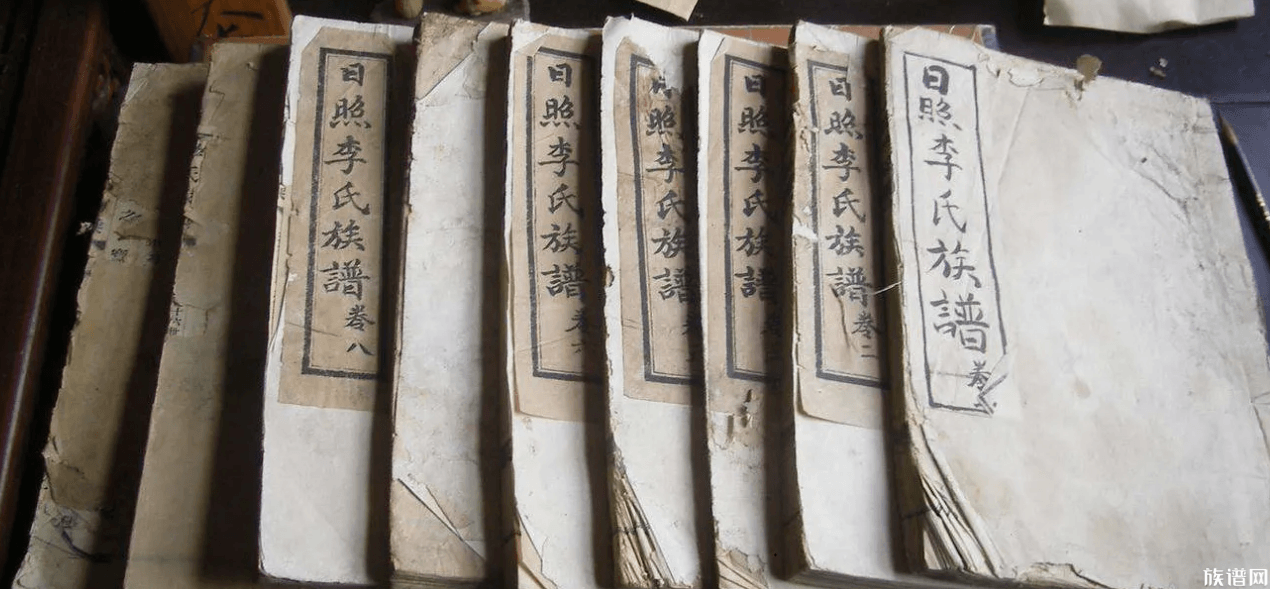 日照李氏族譜
卷八
日照李氏族譜
卷六
照李氏族譜
日照李氏族譜
日照李氏族譜
卷二
日照李氏族譜
卷
族谱网